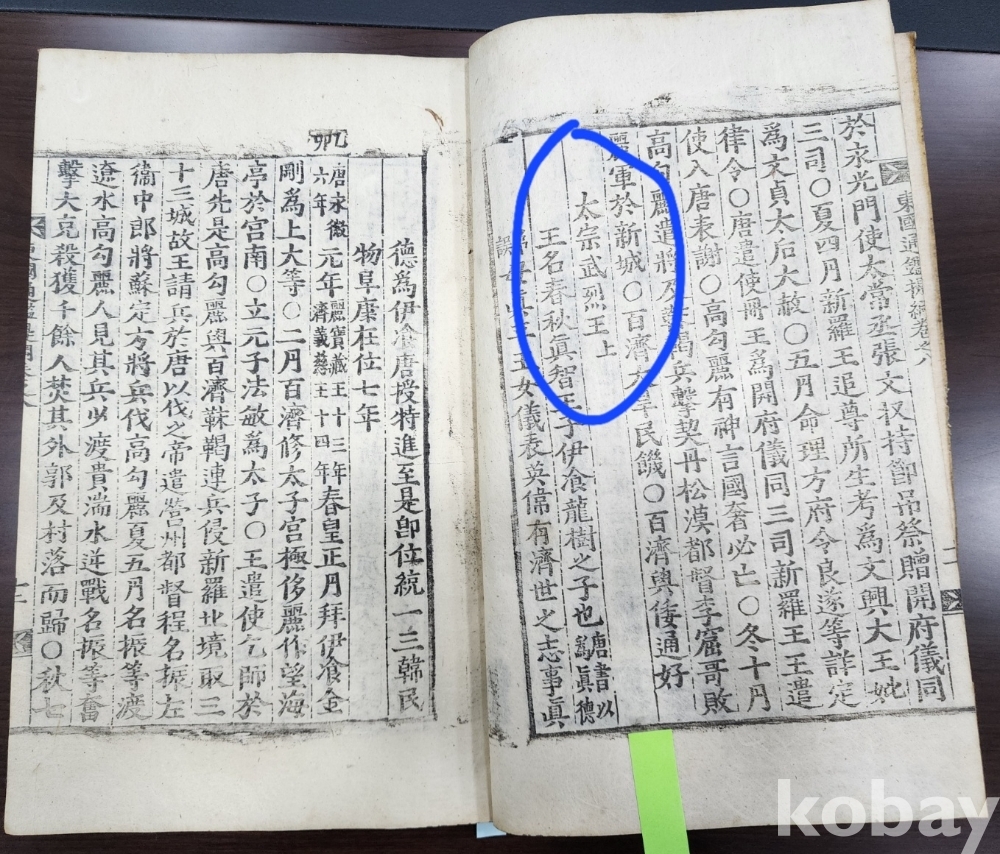 東國通鑑提綱卷之六
於永光門使太常丞張文收持節吊祭贈開府儀同
三司○夏四月新羅王追尊所生考爲文興大王妣
爲文貞太后大赦○五月命理方府令良遂等詳定
律令○唐遣使冊王爲開府儀同三司新羅王王遣
使入唐表謝○高勾麗有神言國奢必亡○冬十月
高勾麗遣將及靺鞨兵擊契丹松漠都督李窟哥敗
麗軍於新城○百濟大旱民饑○百濟與倭通好
太宗武烈王上
王名春秋眞智王子伊飡龍樹之子也唐書以爲眞德
王女儀表英偉有濟世之志事眞
德爲伊飡唐授特進至是卽位統一三韓民
物阜康在位七年
乙卯
唐永徽六年元年麗寶藏王十三年濟義慈王十四年春皇正月拜伊飡金
剛爲上大等○二月百濟修太子宮極侈麗作望海
亭於宮南○立元子法敏爲太子○王遣使乞師於
唐先是高勾麗與百濟靺鞨連兵侵新羅北境取三
十三城故王請兵於唐以伐之帝遣營州都督程名振左
衛中郎將蘇定方將兵伐高勾麗夏五月名振等渡
遼水高勾麗人見其兵少渡貴湍水逆戰名振等奮
擊大克殺獲千餘人焚其外郭及村落而歸○秋七
十二
kobay